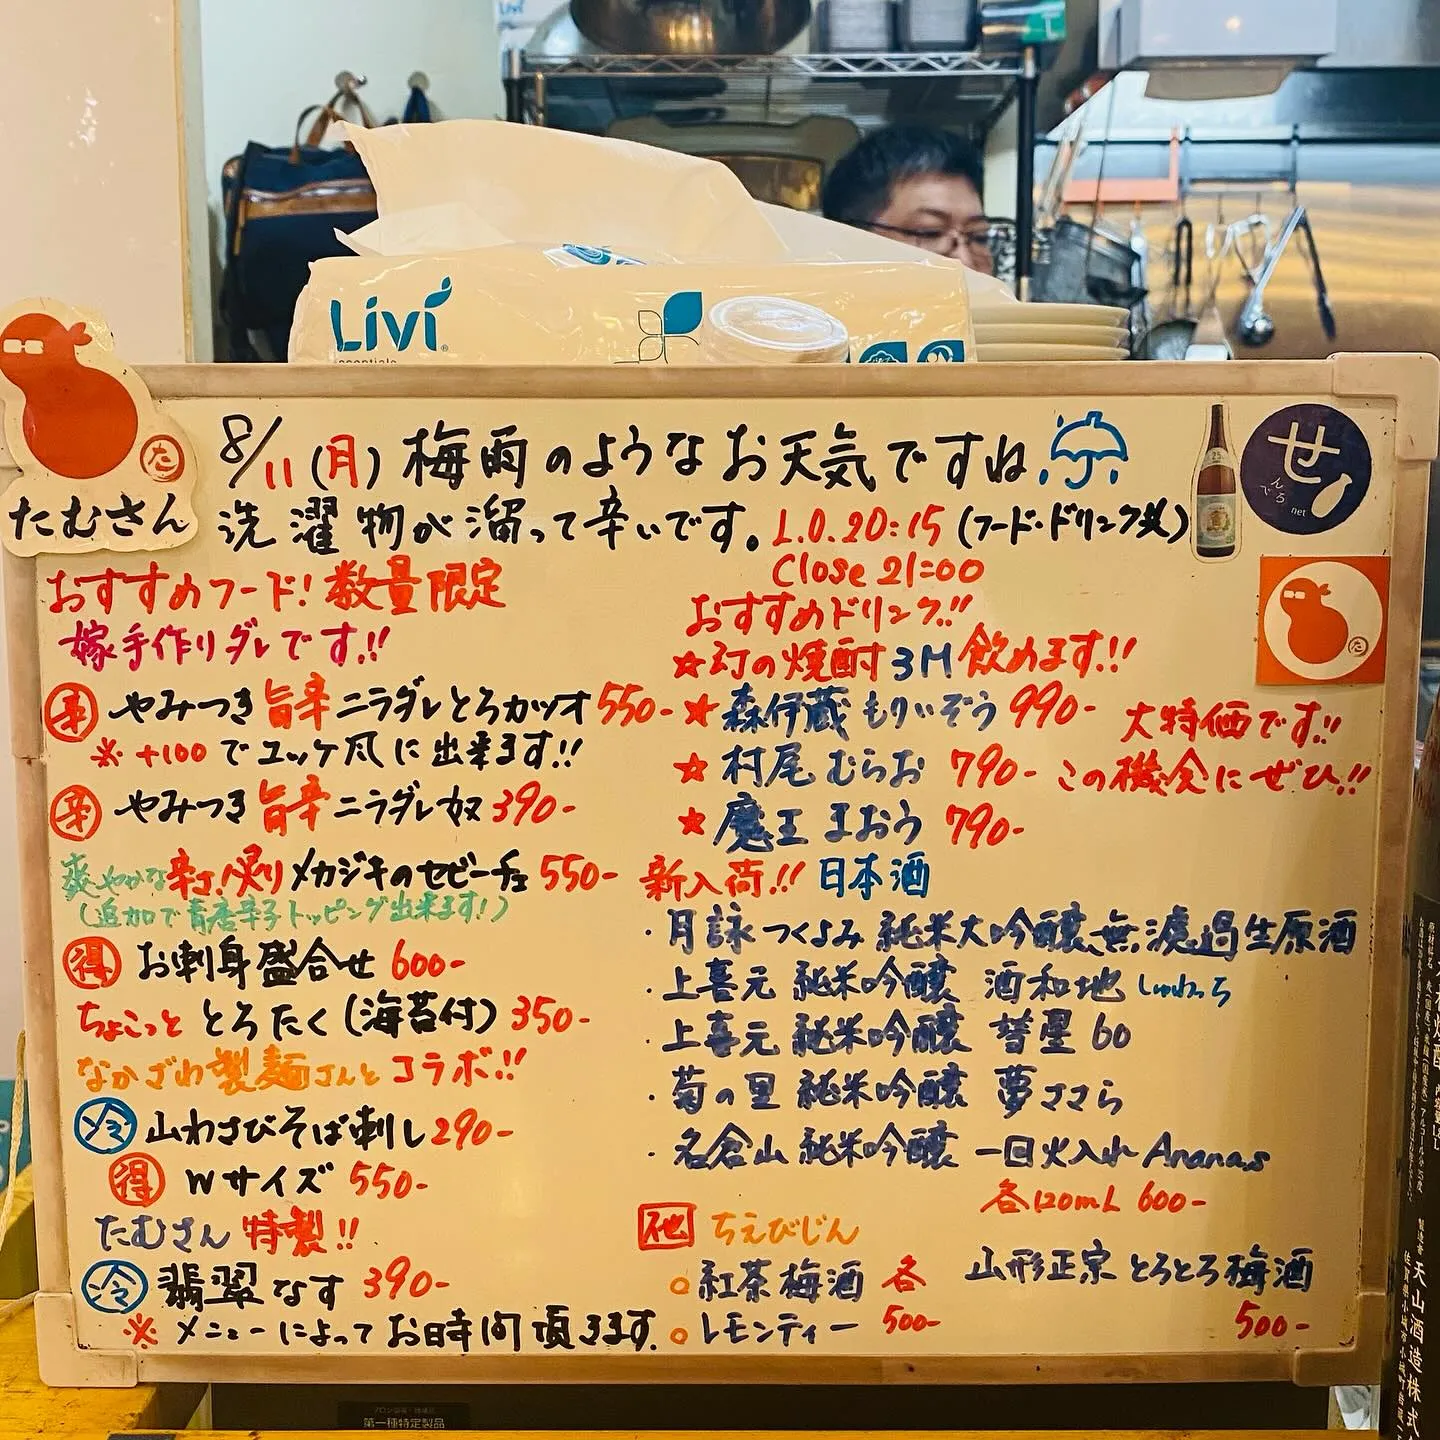 Livi
essentials
た
たむさん
せ
んでろ
net
8/11(月)梅雨のようなお天気ですね
洗濯物が溜って辛いです。L.O.20:15(フード・ドリンク共)
Close 21:00
おすすめフード!数量限定
嫁手作りダレです!!
辛 やみつき旨辛ニラダレとろカツオ 550-
※+100でユッケ風に出来ます!!
辛 やみつき旨辛ニラダレ奴 390-
爽やかな辛さ!炙りメカジキのセビーチェ 550-
(追加で青唐辛子トッピング出来ます!)
得 お刺身盛合せ 600-
ちょこっと とろたく(海苔付) 350-
なかざわ製麺さんとコラボ!!
冷 山わさびそば刺し 290-
得 Wサイズ 550-
たむさん特製!!
冷 翡翠なす 390-
※メニューによってお時間頂きます.
おすすめドリンク!!
☆幻の焼酎3M飲めます!!
★森伊蔵 もりいぞう 990-
★村尾 むらお 790-
★魔王 まおう 790-
大特価です!!
この機会にぜひ!!
新入荷!!日本酒
・月詠 つくよみ 純米大吟醸無濾過生原酒
・上喜元 純米吟醸 酒和地 しゅわっち
・上喜元 純米吟醸 彗星60
・菊の里 純米吟醸 夢ささら
・名倉山 純米吟醸 一回火入れ Ananas
各120mL 600-
他 ちえびじん
○紅茶梅酒 各
○レモンティー 500-
山形正宗 とろとろ梅酒
500-
第一種特定製品
天山酒造株式